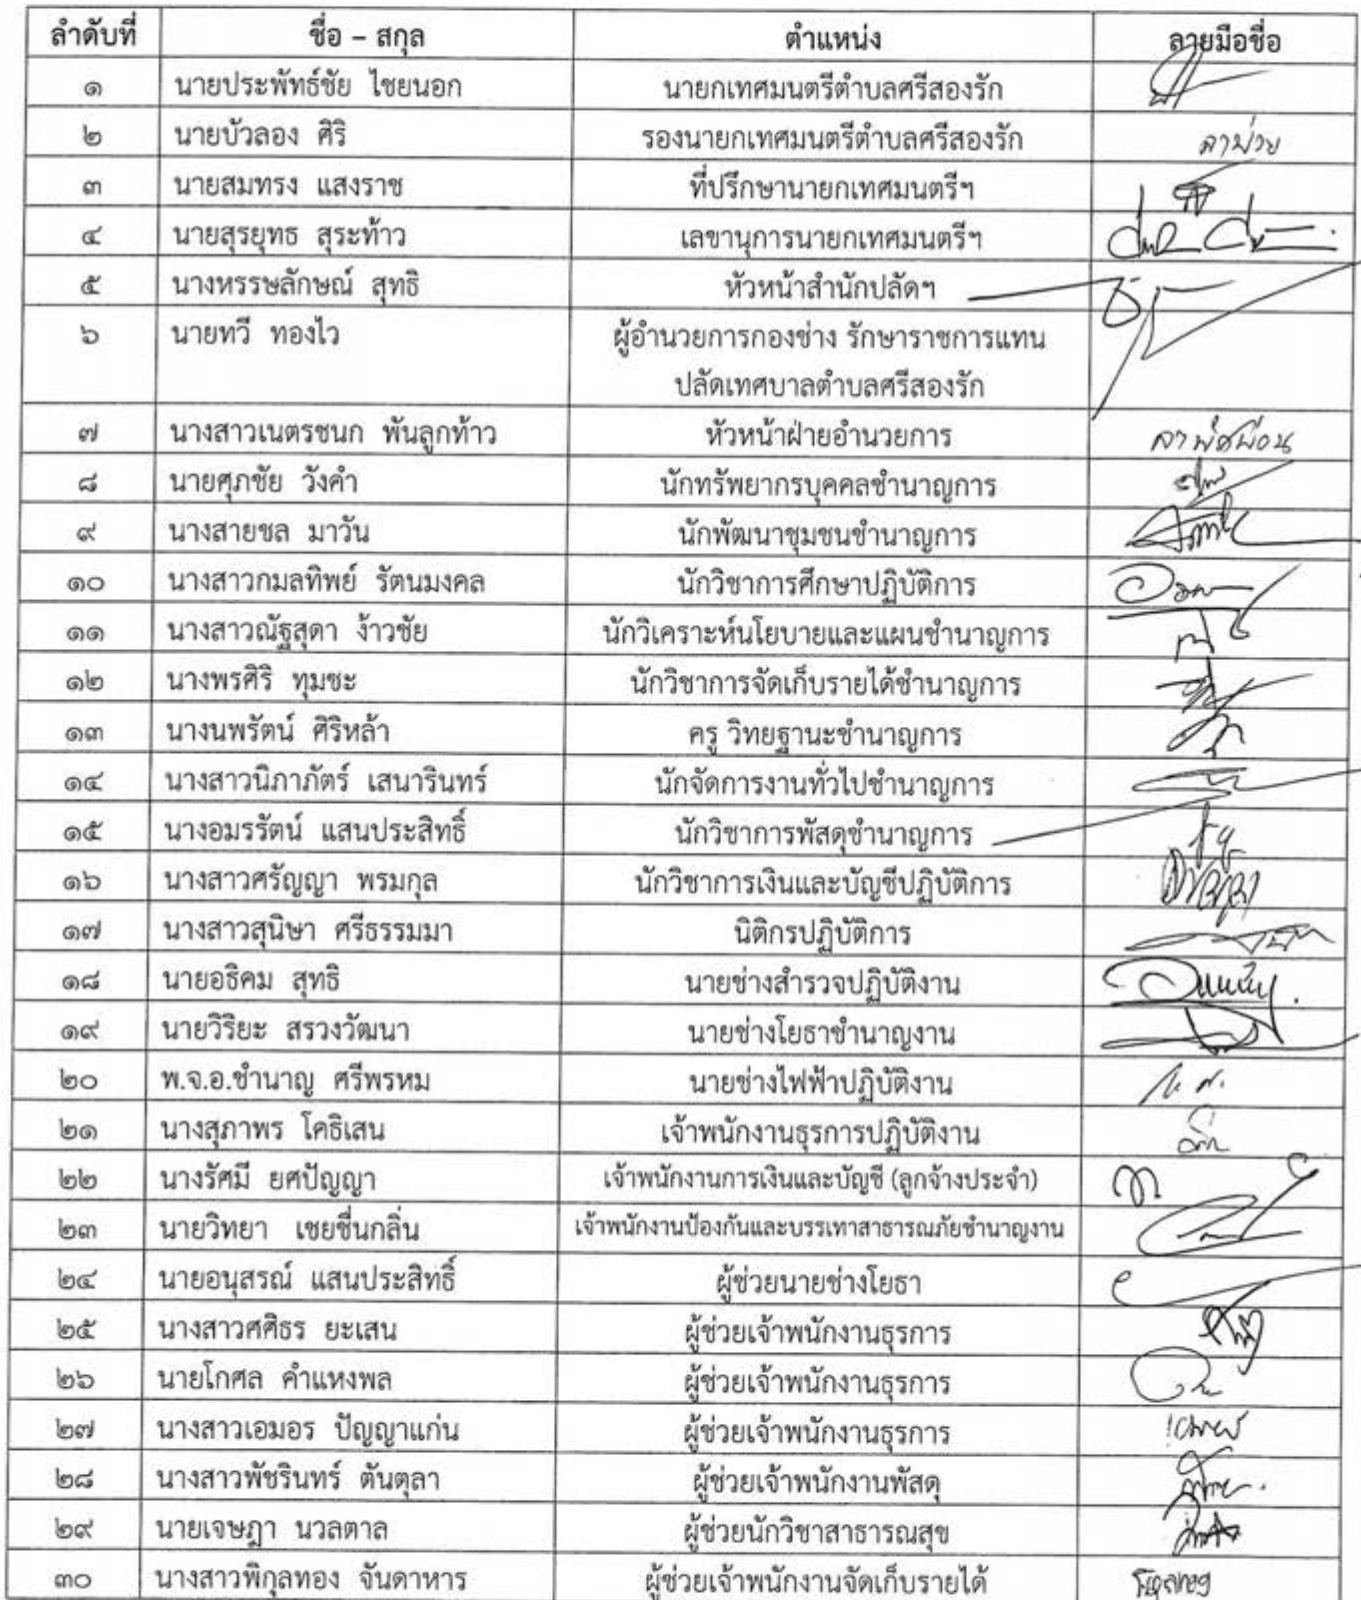 ลำดับที่ ชื่อ – สกุล ตำแหน่ง ลายมือชื่อ
๑ นายประพัทธ์ชัย ไชยนอก นายกเทศมนตรีตำบลศรีสองรัก
๒ นายบัวลอง ศิริ รองนายกเทศมนตรีตำบลศรีสองรัก ลาป่วย
๓ นายสมทรง แสงราช ที่ปรึกษานายกเทศมนตรีฯ
๔ นายสุรยุทธ สุระท้าว เลขานุการนายกเทศมนตรีฯ
๕ นางหรรษลักษณ์ สุทธิ หัวหน้าสำนักปลัดฯ
๖ นายทวี ทองไว ผู้อำนวยการกองช่าง รักษาราชการแทน
ปลัดเทศบาลตำบลศรีสองรัก
๗ นางสาวเนตรชนก พันลูกท้าว หัวหน้าฝ่ายอำนวยการ ลาพักผ่อน
๘ นายศุภชัย วังคำ นักทรัพยากรบุคคลชำนาญการ
๙ นางสายชล มาวัน นักพัฒนาชุมชนชำนาญการ
๑๐ นางสาวกมลทิพย์ รัตนมงคล นักวิชาการศึกษาปฏิบัติการ
๑๑ นางสาวณัฐสุดา ง้าวชัย นักวิเคราะห์นโยบายและแผนชำนาญการ
๑๒ นางพรศิริ ทุมชะ นักวิชาการจัดเก็บรายได้ชำนาญการ
๑๓ นางนพรัตน์ ศิริหล้า ครู วิทยฐานะชำนาญการ
๑๔ นางสาวนิภาภัตร์ เสนารินทร์ นักจัดการงานทั่วไปชำนาญการ
๑๕ นางอมรรัตน์ แสนประสิทธิ์ นักวิชาการพัสดุชำนาญการ
๑๖ นางสาวศรัญญา พรมกุล นักวิชาการเงินและบัญชีปฏิบัติการ
๑๗ นางสาวสุนิษา ศรีธรรมมา นิติกรปฏิบัติการ
๑๘ นายอธิคม สุทธิ นายช่างสำรวจปฏิบัติงาน
๑๙ นายวิริยะ สรวงวัฒนา นายช่างโยธาชำนาญงาน
๒๐ พ.จ.อ.ชำนาญ ศรีพรหม นายช่างไฟฟ้าปฏิบัติงาน
๒๑ นางสุภาพร โคธิเสน เจ้าพนักงานธุรการปฏิบัติงาน
๒๒ นางรัศมี ยศปัญญา เจ้าพนักงานการเงินและบัญชี (ลูกจ้างประจำ)
๒๓ นายวิทยา เชยชื่นกลิ่น เจ้าพนักงานป้องกันและบรรเทาสาธารณภัยชำนาญงาน
๒๔ นายอนุสรณ์ แสนประสิทธิ์ ผู้ช่วยนายช่างโยธา
๒๕ นางสาวศศิธร ยะเสน ผู้ช่วยเจ้าพนักงานธุรการ
๒๖ นายโกศล คำแหงพล ผู้ช่วยเจ้าพนักงานธุรการ
๒๗ นางสาวเอมอร ปัญญาแก่น ผู้ช่วยเจ้าพนักงานธุรการ
๒๘ นางสาวพัชรินทร์ ตันตุลา ผู้ช่วยเจ้าพนักงานพัสดุ
๒๙ นายเจษฎา นวลตาล ผู้ช่วยนักวิชาสาธารณสุข
๓๐ นางสาวพิกุลทอง จันดาหาร ผู้ช่วยเจ้าพนักงานจัดเก็บรายได้